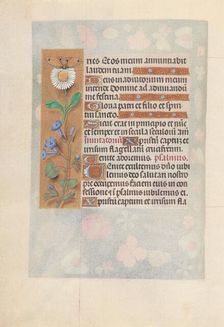 nes Et os meum annunciabit
laudem tuam
Deus in adiutorium meum
intende Domine ad adiuuandū
me festina
Gloria patri et filio et spiri
tui sancto
Sicut erat in principio et nūc
et semper et in secula seculorū amē
Christum captū et
irrisum flagellatū crucifixum
Venite adoremus psalmus
Venite exultemus dño iubi
lemus deo salutari nostro
preoccupemus faciem eius in confes
sione et in psalmis iubilemus ei
Christum captū et irrisum fla